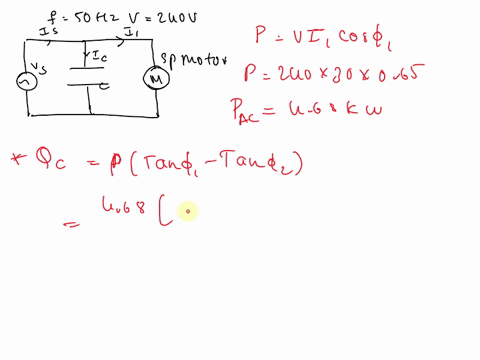 f = 50Hz V = 240V
Is I1
Ic
Vs C M SP motor
P = VI1 cosϕ1
P = 240 × 30 × 0.65
PAC = 4.68 kw
* Qc = P (Tanϕ1 - Tanϕ2)
= 4.68 [